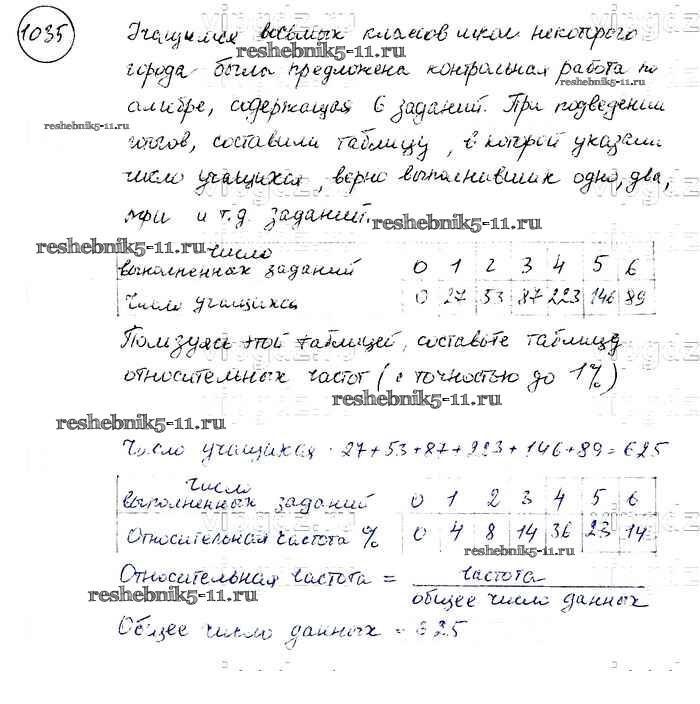 1035
Учащимся восьмых классов школ некоторого
города была предложена контрольная работа по
алгебре, содержащая 6 заданий. При подведении
итогов, составили таблицу, в которой указали
число учащихся, верно выполнивших одно, два,
три и т.д. заданий.
число
выполненных заданий 0 1 2 3 4 5 6
Число учащихся 0 27 53 87 223 146 89
Пользуясь этой таблицей, составьте таблицу
относительных частот (с точностью до 1%)
Число учащихся 27+53+87+223+146+89=625
Число
выполненных заданий 0 1 2 3 4 5 6
Относительная частота % 0 4 8 14 36 23 14
Относительная частота = частота
общее число данных
Общее число данных = 625
reshebnik5-11.ru
reshebnik5-11.ru
reshebnik5-11.ru
reshebnik5-11.ru
reshebnik5-11.ru
reshebnik5-11.ru
reshebnik5-11.ru
reshebnik5-11.ru